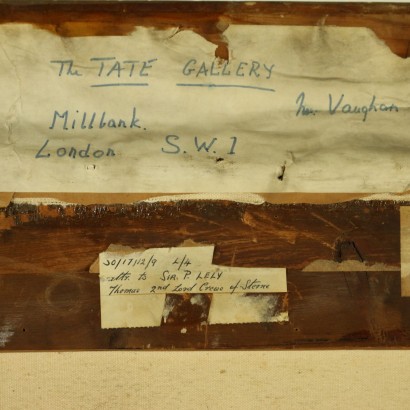 The TATE GALLERY
Mr Vaughan
Millbank.
London S.W.1
30/17/12/9 L/4
attr. to SIR. P. LELY
Thomas 2nd Lord Crewe of Steene